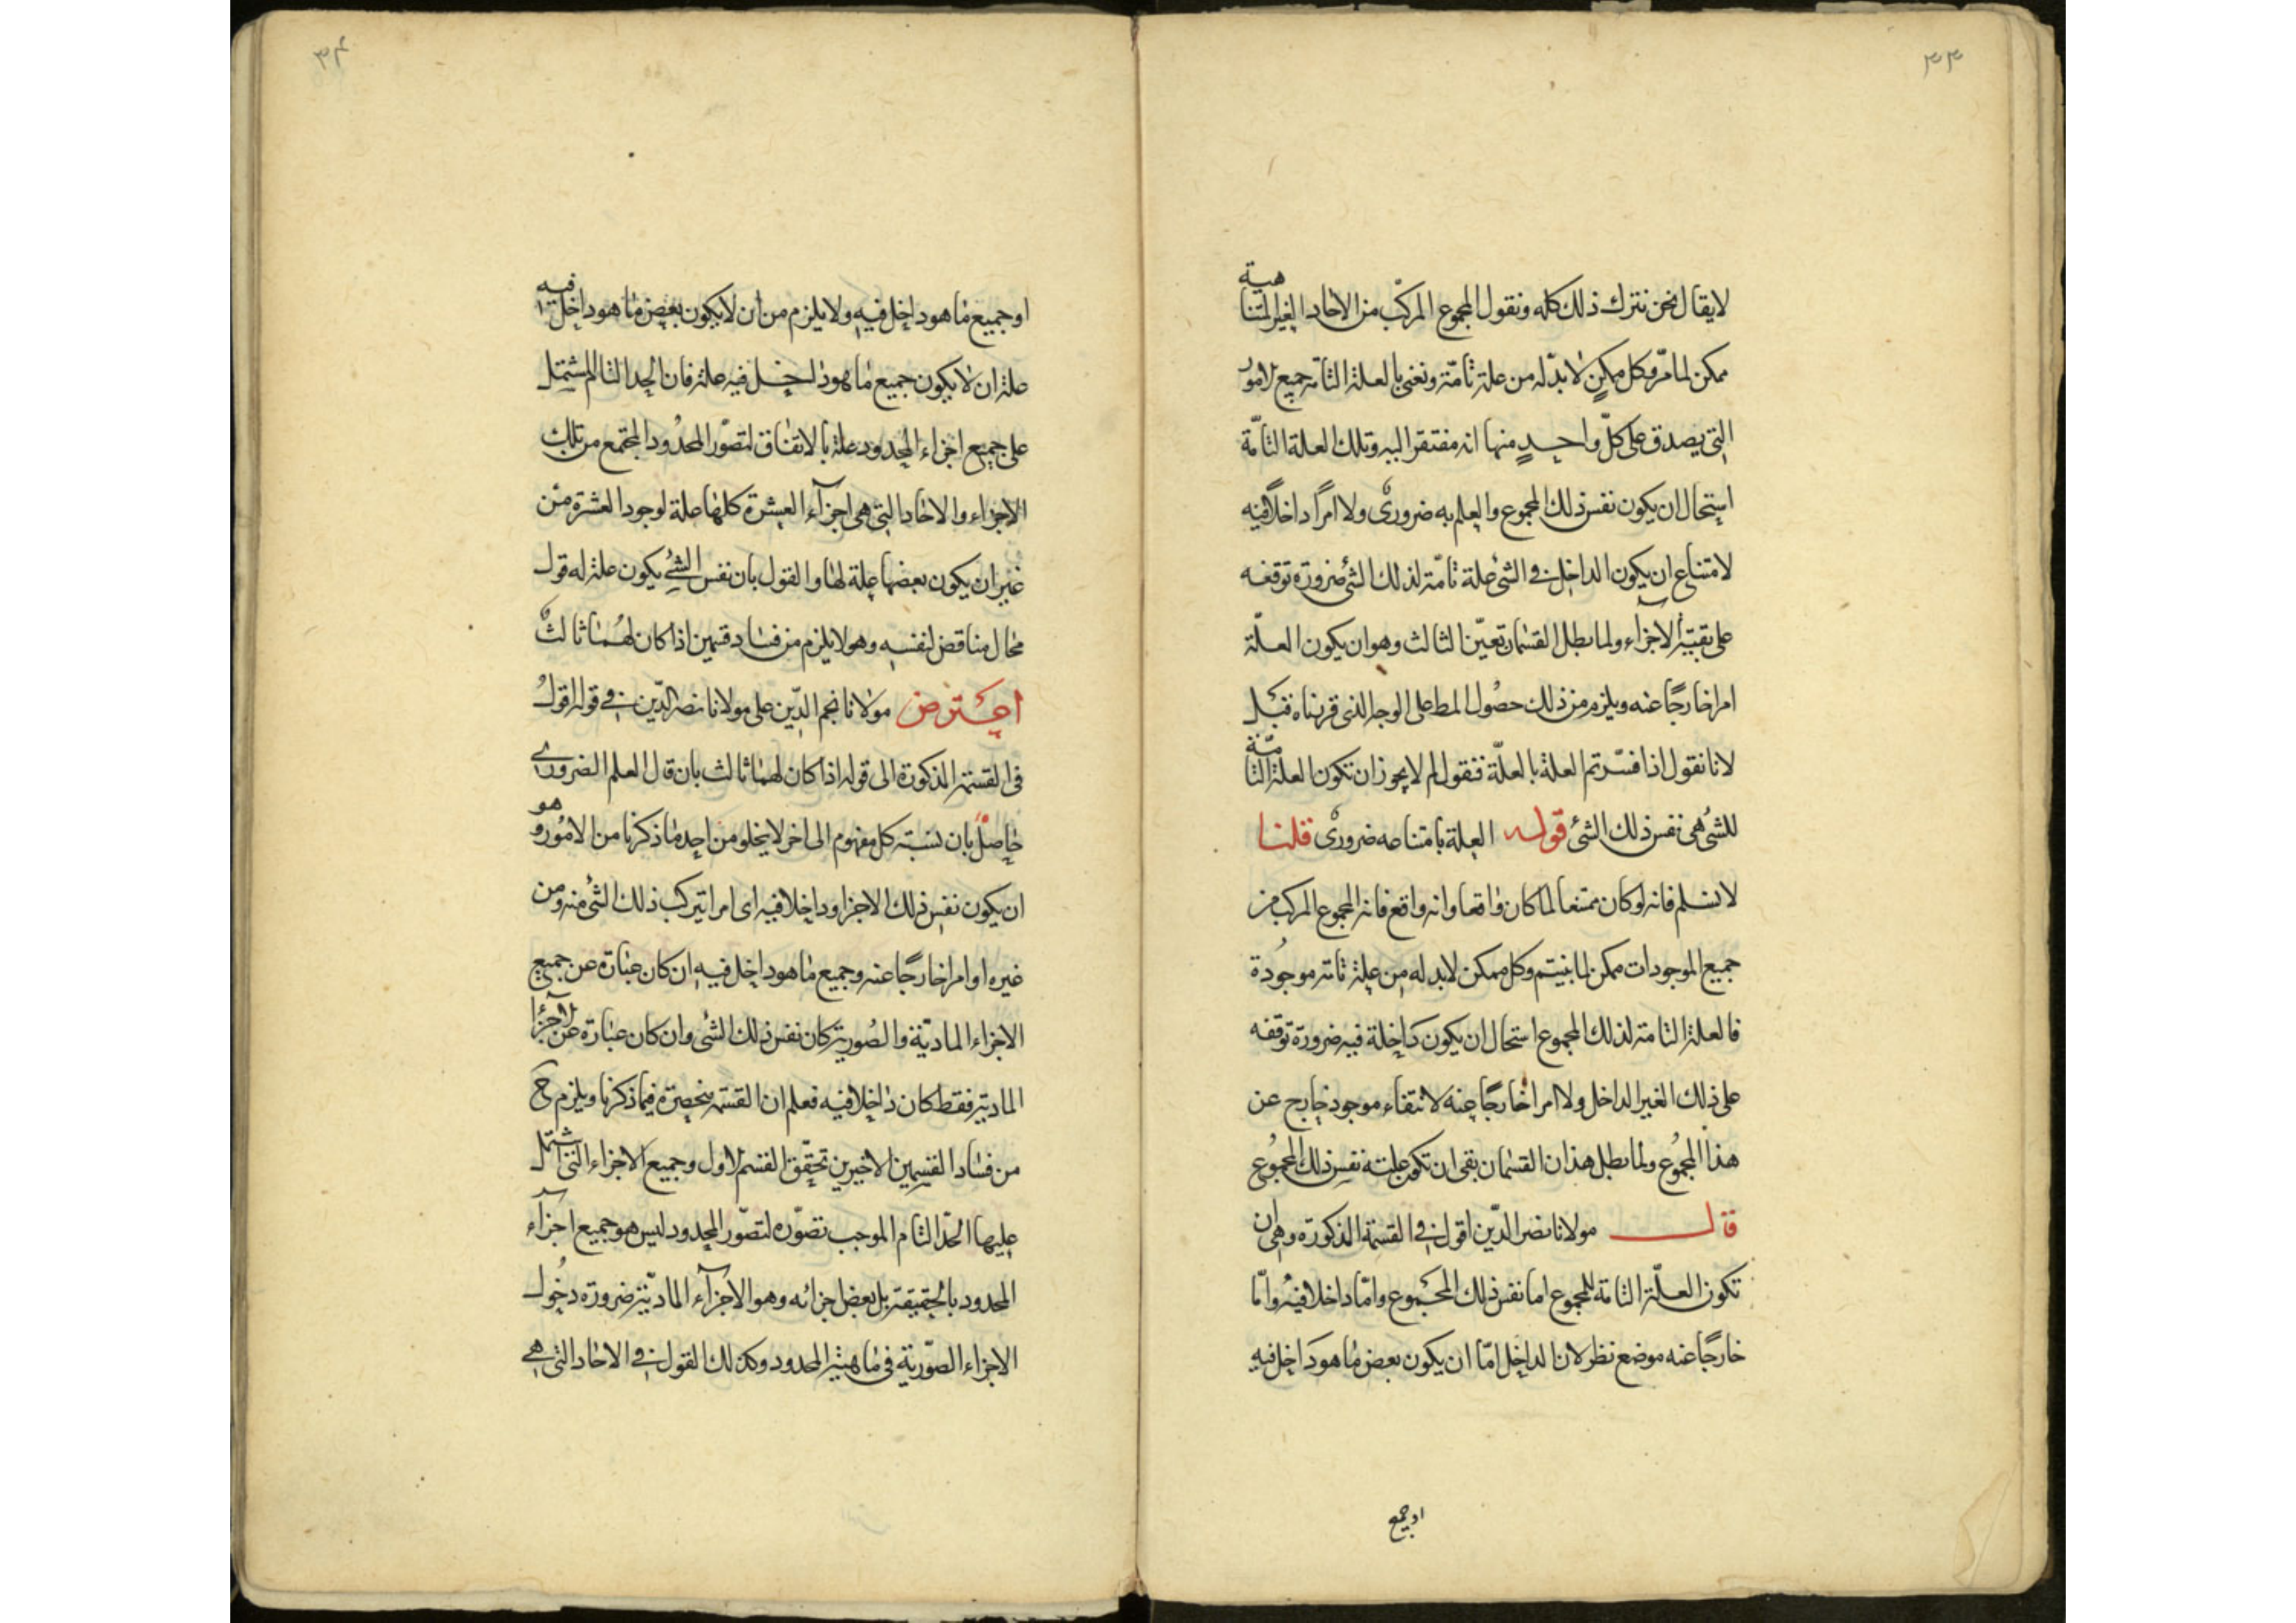 ٣٣
لا يقال نحن نترك ذلك كله ونقول المجموع المركّب من الاحاد الغير المتناهية
ممكن لما مرّ وكل ممكن لا بدّ له من علة تامّة ونعنى بالعلة التامّة جميع الامور
التى يصدق على كلّ واحدٍ منها انه مفتقر اليه وتلك العلة التامّة
استحال ان يكون نفس ذلك المجموع والعلم به ضرورىٌ ولا امرًا داخلًا فيه
لامتناع ان يكون الداخل فى الشئ علة تامّة لذلك الشئ ضرورة توقفه
على بقيّة الاجزاء ولما بطل القسمان تعيّن الثالث وهو ان يكون العلّة
امرا خارجًا عنه ويلزم من ذلك حصُول المط على الوجه الذى قررناه قبل
لانا نقول اذا فسّرتم العلة بالعلّة فنقول لم لا يجوز ان تكون العلة التامّة
للشئ هى نفس ذلك الشئ قوله العلة بامتناعه ضرورىٌ قلنا
لا نسلم فانه لو كان ممتنعا لما كان واقعا وانه واقع فانه المجموع المركب من
جميع الموجودات ممكن لما بنيتم وكل ممكن لا بد له من علة تامة موجُودة
فالعلة التامة لذلك المجموع استحال ان يكون داخلة فيه ضرورة توقفه
على ذلك الغير الداخل ولا امرا خارجًا عنه لانتفاء موجود خارج عن
هذا المجمُوع ولما بطل هذان القسمان بقى ان تكون علته نفس ذلك المجمُوع
قال مولانا نصر الدّين اقول فى القسمة المذكورة وهى ان
تكون العلّة التامة للمجموع اما نفس ذلك المجموع وامّا داخلا فيه وامّا
خارجًا عنه موضع نظر لان الداخل امّا ان يكون بعض ما هو داخل فيه
او جميع
٣٤
او جميع ما هو داخل فيه ولا يلزم من ان لا يكون بعض ما هو داخل فيه
علة ان لا يكون جميع ما هو داخل فيه علة فان الحد التام المشتمل
على جميع اجزاء المحدود علة بالاتفاق لتصوّر المحدُود المجتمع من تلك
الاجزاء والاحاد التى هى اجزآء العشرة كلها علة لوجود العشرة من
غير ان يكون بعضها علة لها والقول بان نفس الشئ يكون علة له قول
محال مناقض لنفسه وهو لا يلزم من فساد قسمين اذا كان لهُما ثالثٌ
اعترض مولانا نجم الدّين على مولانا نصر الدّين فى قوله اقول
فى القسمة المذكورة الى قوله اذا كان لهما ثالث بان قال العلم الضرورى
حاصلٌ بان نسبة كل مفهوم الى اخر لا يخلو من احد ما ذكرنا من الامُور وهو
ان يكون نفس ذلك الاخر او داخلا فيه اى امرا يتركب ذلك الشئ منه ومن
غيره او امرا خارجًا عنه وجميع ما هو داخل فيه ان كان عبارة عن جميع
الاجزاء الماديّة والصُورية كان نفس ذلك الشئ وان كان عبارة عن الاجزآء
المادية فقط كان داخلا فيه فعلم ان القسمة منحصرة فيما ذكرنا ويلزم ح
من فساد القسمين الاخيرين تحقّق القسم الاول وجميع الاجزاء التى اشتمل
عليها الحدّ التام الموجب تصوّره لتصوّر المحدود ليس هو جميع اجزآء
المحدود بالحقيقة بل بعض اجزائه وهو الاجزآء الماديّة ضرورة دخُول
الاجزاء الصّورية فى ماهيّة المحدود وكذلك القول فى الاحاد التى هى